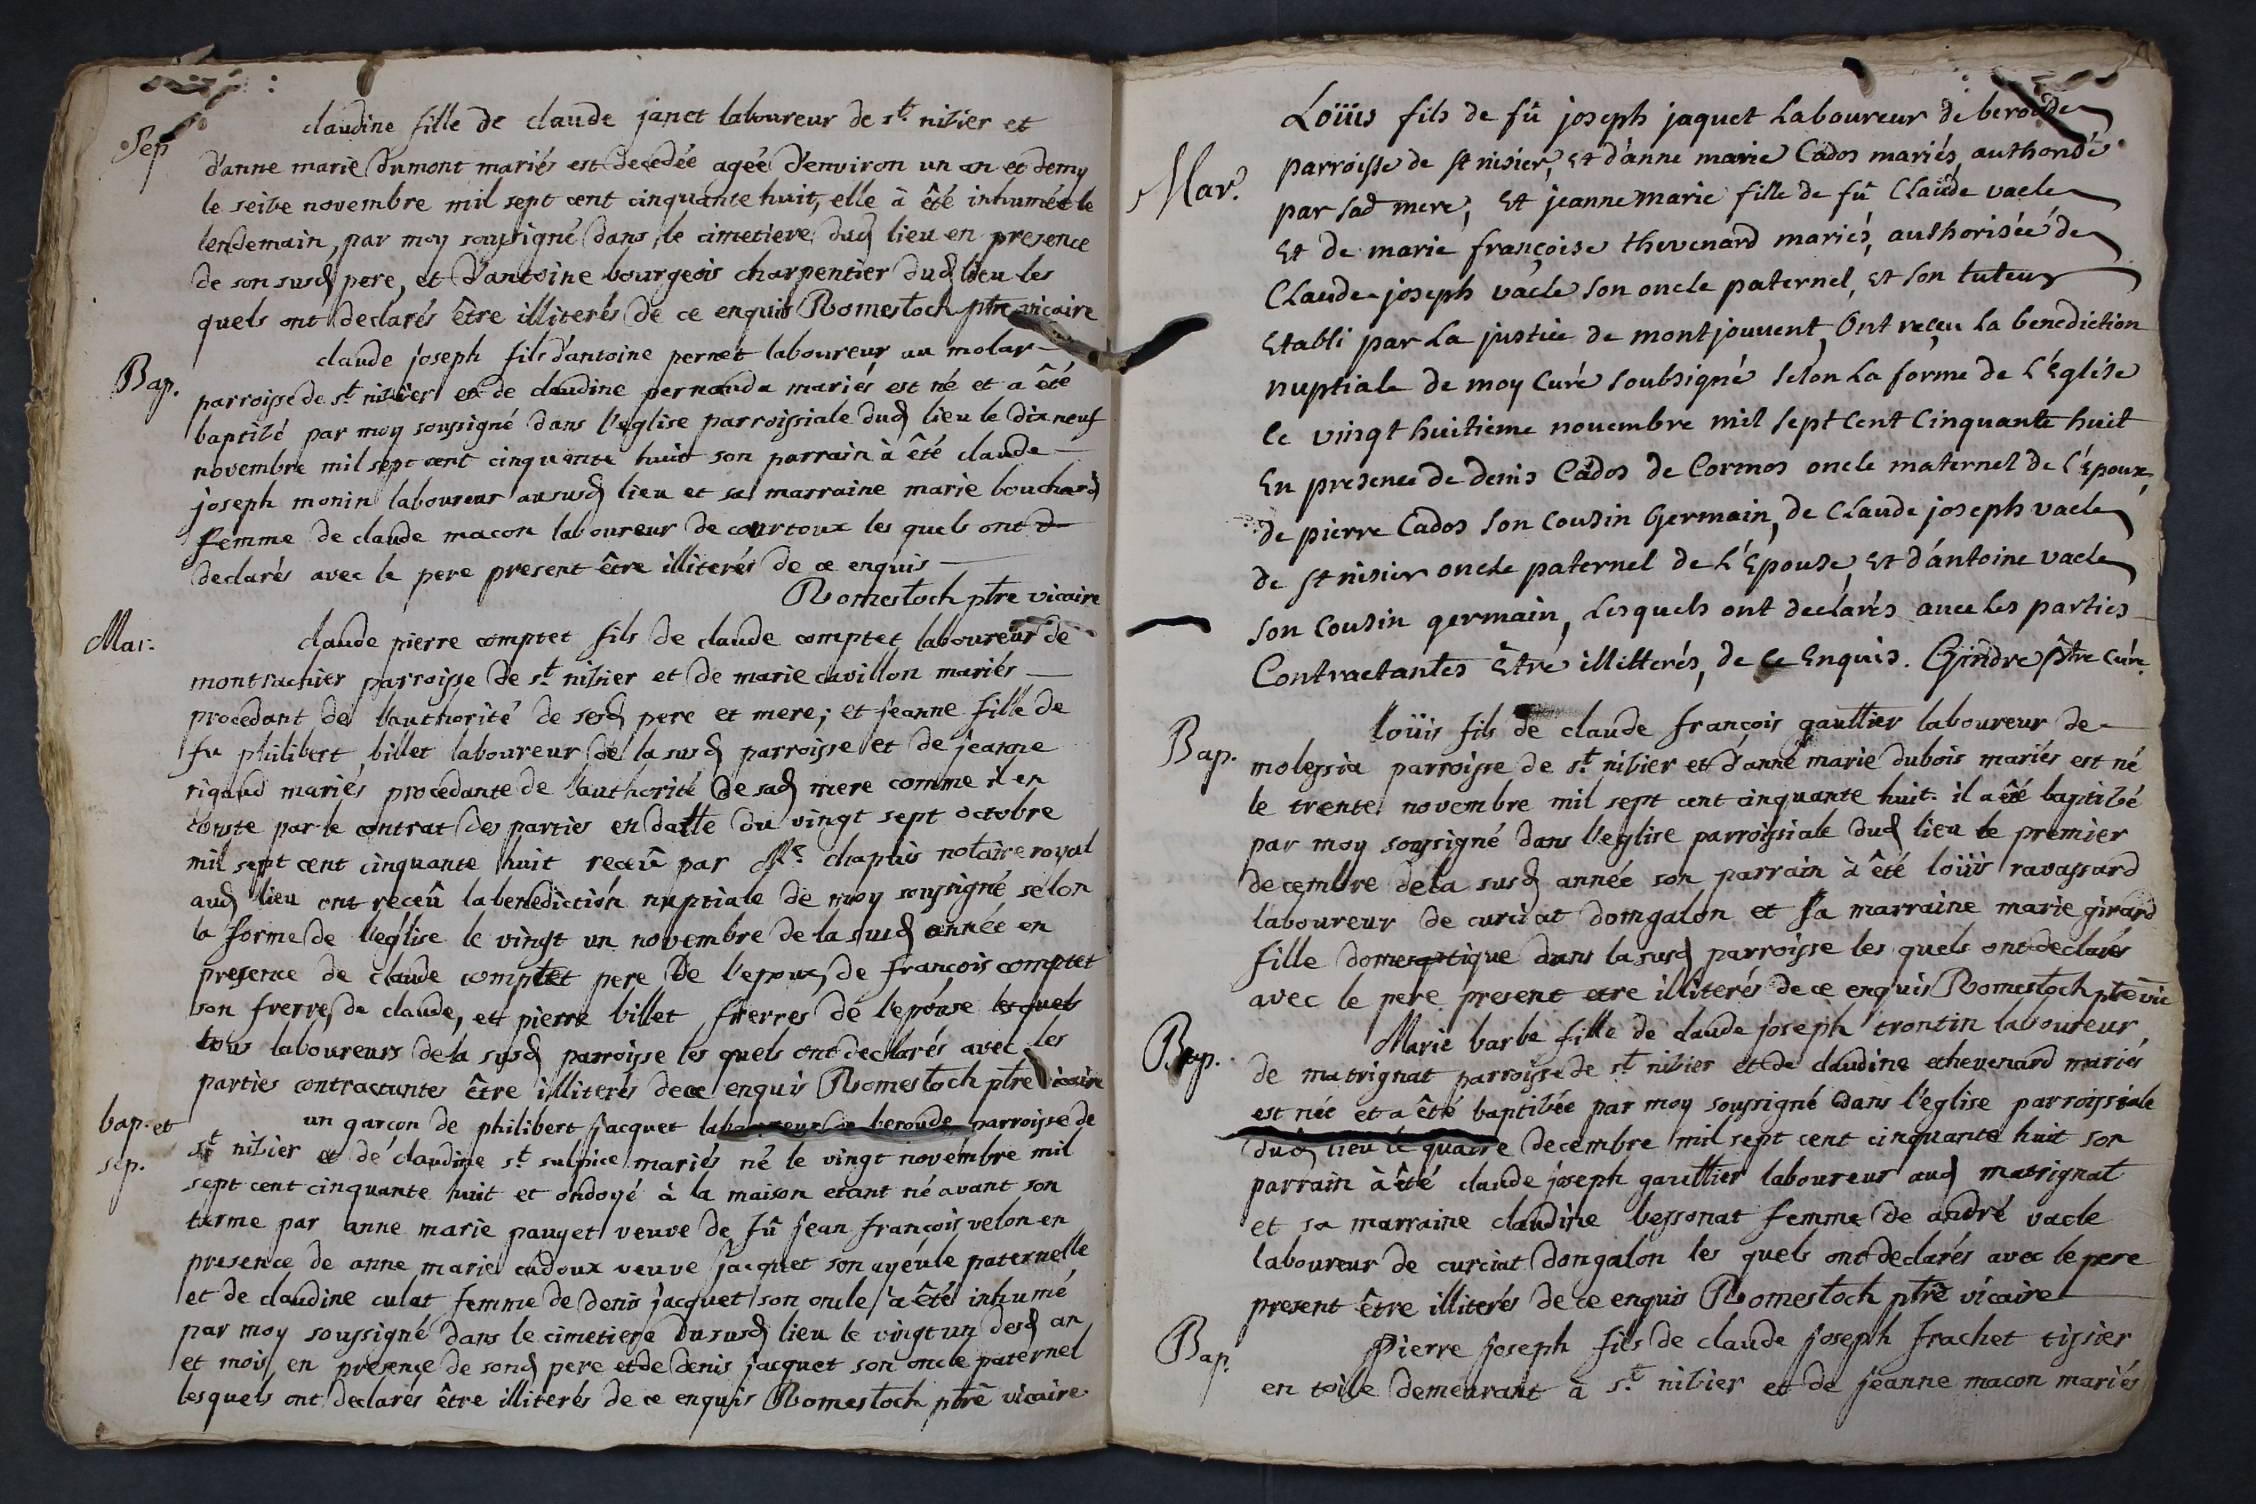 Sep
claudine fille de claude janet laboureur de st nizier et
d'anne marie dumont mariés est decedée agée d'environ un an et demy
le seize novembre mil sept cent cinquante huit, elle à été inhumée le
lendemain, par moy soussigné dans le cimetiere dud lieu en presence
de son susd pere, et d'antoine bourgeois charpentier dud lieu les
quels ont declarés être illiterés de ce enquis Romestoch ptre vicaire
Bap.
claude joseph fils d'antoine pernet laboureur au molar
parroisse de st nizier et de claudine pernauda mariés est né et a été
baptizé par moy soussigné dans l'eglise parroissiale dud lieu le dix neuf
novembre mil sept cent cinquante huit son parrain à été claude
joseph monin laboureur au susd lieu et sa marraine marie bouchard
femme de claude macon laboureur de courtoux les quels ont d
declarés avec le pere present être illiterés de ce enquis
Romestoch ptre vicaire
Mar.
claude pierre comptet fils de claude comptet laboureur de
montrachier parroisse de st nizier et de marie cavillon mariés
procedant de l'authorité de sesd pere et mere; et jeanne fille de
fu philibert billet laboureur de la susd parroisse et de jeanne
rigaud mariés procedante de l'authorité de sad mere comme il en
conste par le contrat des parties en datte du vingt sept octobre
mil sept cent cinquante huit recû par Me chapuis notaire royal
aud lieu ont recêu la benediction nuptiale de moy soussigné selon
la forme de l'eglise le vingt un novembre de la susd année en
presence de claude comptet pere de l'epoux, de françois comptet
son frerre, de claude, et pierre billet frerres de l'epouse les quels
tous laboureurs de la susd parroisse les quels ont declarés avec les
parties contractantes être illiterés de ce enquis Romestoch ptre vicaire
bap. et
sep.
un garçon de philibert jacquet laboureur de beroude parroisse de
st nizier et de claudine st sulpice mariés né le vingt novembre mil
sept cent cinquante huit et ondoyé à la maison etant né avant son
terme par anne marie pauget veuve de fû jean françois velon en
presence de anne marie cadoux veuve jacquet son ayeule paternelle
et de claudine culat femme de denis jacquet son oncle a été inhumé
par moy soussigné dans le cimetiere du susd lieu le vingt un desd an
et mois en presence de sond pere et de denis jacquet son oncle paternel
lesquels ont declarés être illiterés de ce enquis Romestoch ptre vicaire
Mar.
Loüis fils de fû joseph jaquet Laboureur de beroude
parroisse de st nisier, et d'anne marie Cados mariés, authorisé
par sad mere, et jeanne marie fille de fû Claude vacle
Et de marie françoise thevenard mariés, authorisée de
Claude joseph vacle son oncle paternel, et son tuteur
Etabli par La justice de montjouvent, Ont reçeu La benediction
nuptiale de moy Curé soubsigné selon La forme de L'Église
le vingt huitieme novembre mil sept Cent Cinquante huit
En presence de denis Cados de Cormos oncle maternel de L'Époux,
de pierre Cados son Cousin Germain, de Claude joseph vacle
de st nisier oncle paternel de L'Épouse, Et d'antoine vacle
son Cousin germain, Lesquels ont declarés avec Les parties
Contractantes Être illitterés, de Ce Enquis. Gindre ptre Curé.
Bap.
loüis fils de claude françois gaultier laboureur de
molessia parroisse de st nizier et d'anne marie dubois mariés est né
le trente novembre mil sept cent cinquante huit. il a été baptizé
par moy soussigné dans l'eglise parroissiale dud lieu le premier
decembre de la susd année son parrain à été loüis ravassard
laboureur de curciat domgalon et sa marraine marie girard
fille domestique dans la susd parroisse les quels ont declarés
avec le pere present etre illiterés de ce enquis Romestoch ptre vic
Bap.
Marie barbe fille de claude joseph trontin laboureur
de matrignat parroisse de st nizier et de claudine thevenard mariés
est née et a été baptizée par moy soussigné dans l'église parroissiale
dud lieu le quatre decembre mil sept cent cinquante huit son
parrain à été claude joseph gaulttier laboureur aud matrignat
et sa marraine claudine bessonat femme de andré vacle
laboureur de curciat dongalon les quels ont declarés avec le pere
present être illiterés de ce enquis Romestoch ptre vicaire
Bap.
Pierre joseph fils de claude joseph frachet tissier
en toile demeurant à st nizier et de jeanne macon mariés